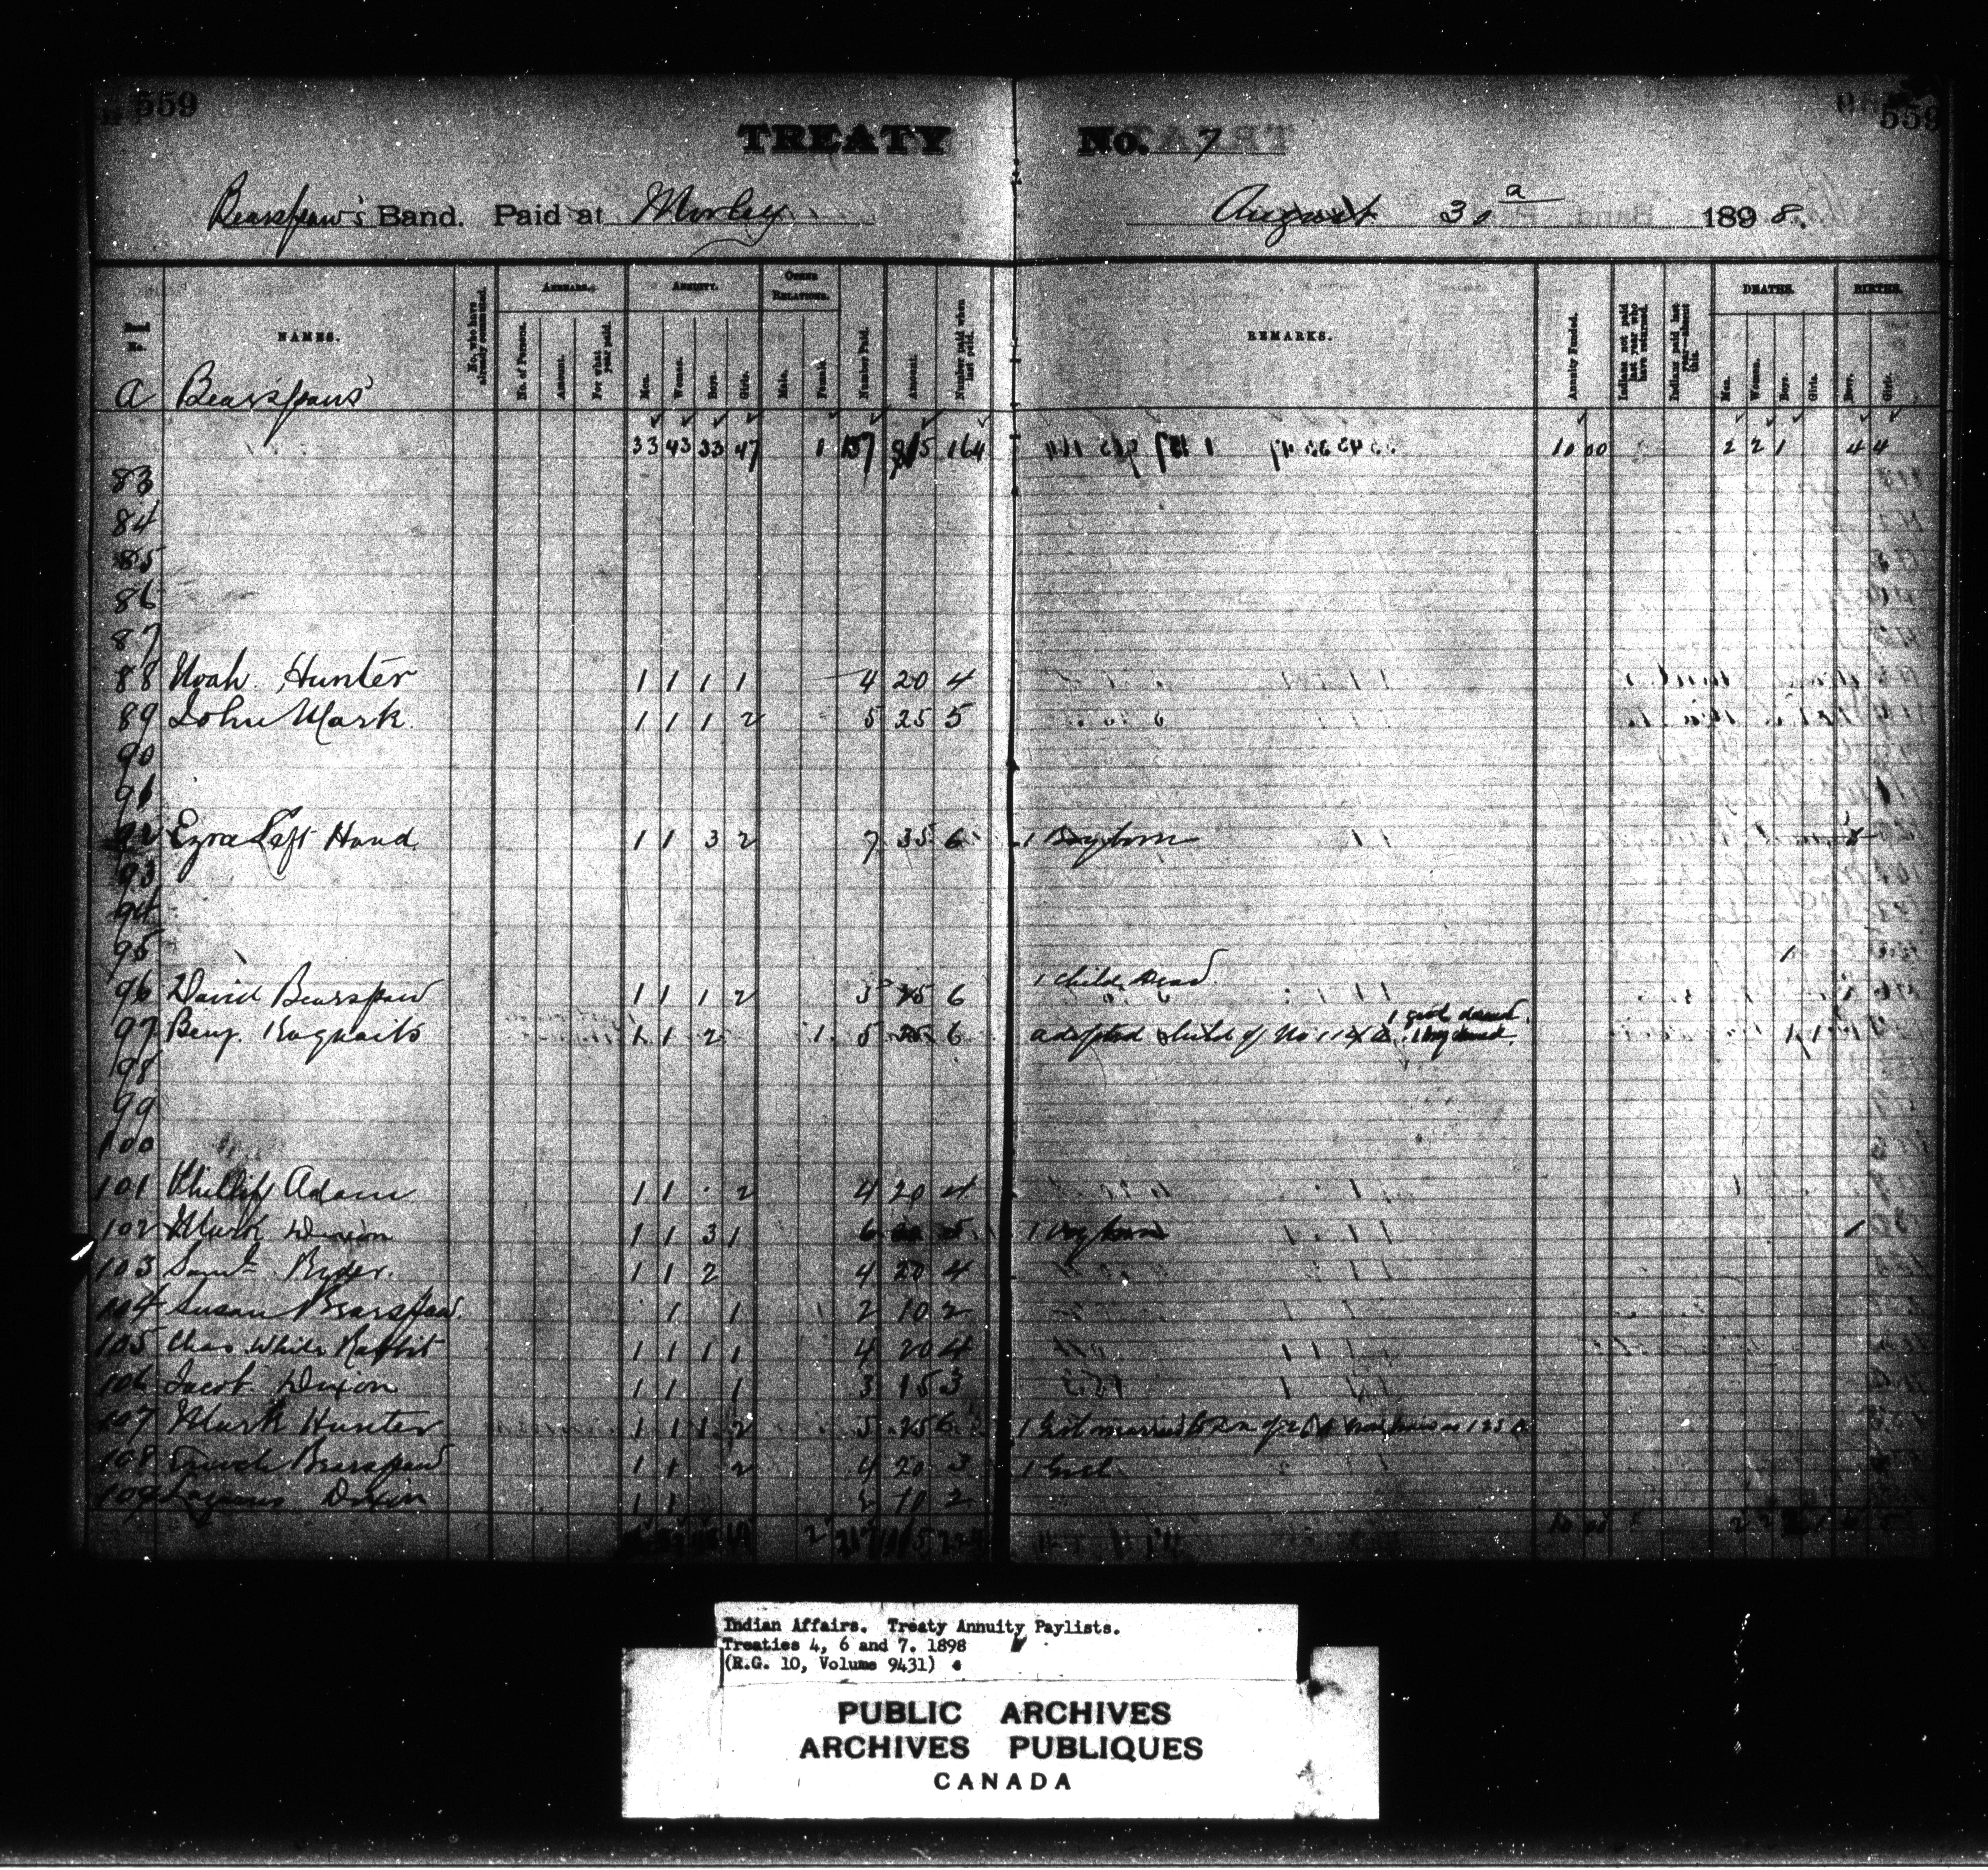 559
559
TREATY No. 7
Bearspaw's Band. Paid at Morley August 30 1898.
Band No.
NAMES.
No. who have already commuted.
ARREARS.
No. of Persons.
Amount.
For what year paid.
ANNUITY.
Men.
Women.
Boys.
Girls.
OTHER RELATIONS.
Male.
Female.
Number Paid.
Amount.
Number paid when last paid.
REMARKS.
Annuity Funded.
Indians not paid last year who have returned.
Indians paid last year—absent this.
DEATHS.
Men.
Women.
Boys.
Girls.
BIRTHS.
Boys.
Girls.
a Bearspaws'
33 43 33 47 1 157 164 10 00 2 2 1 4 4
83
84
85
86
87
88 Noah Hunter 1 1 1 1 4 20 4
89 John Mark 1 1 1 2 5 25 5
90
91
92 Ezra Left Hand 1 1 3 2 7 35 6 1 Boy born
93
94
95
96 David Bearspaw 1 1 1 2 5 25 6 1 child dead 1
97 Benj. 1 1 2 1 5 25 6 adopted child of No 1 girl dead 1 boy dead
98
99
100
101 Phillip Adam 1 1 2 4 20 4
102 Mark Dixon 1 1 3 1 6 5 1 boy born 1
103 Saml Ryder 1 1 2 4 20 4
104 Susan Bearspaw 1 1 2 10 2
105 Chas White Rabbit 1 1 1 1 4 20 4
106 Jacob Dixon 1 1 1 3 15 3
107 Mark Hunter 1 1 1 2 5 25 6 1 Girl married
108 Enoch Bearspaw 1 1 2 4 20 3 1 Girl
109 Lazarus Dixon 1 1 2 10 2
Indian Affairs. Treaty Annuity Paylists.
Treaties 4, 6 and 7. 1898
(R.G. 10, Volume 9431)
PUBLIC ARCHIVES
ARCHIVES PUBLIQUES
CANADA